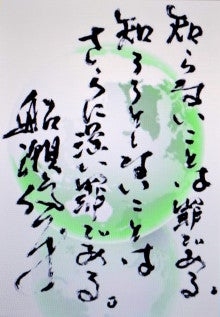 知らないことは罪である。
知ろうとしないことは
さらに深い罪である。
船瀬俊介